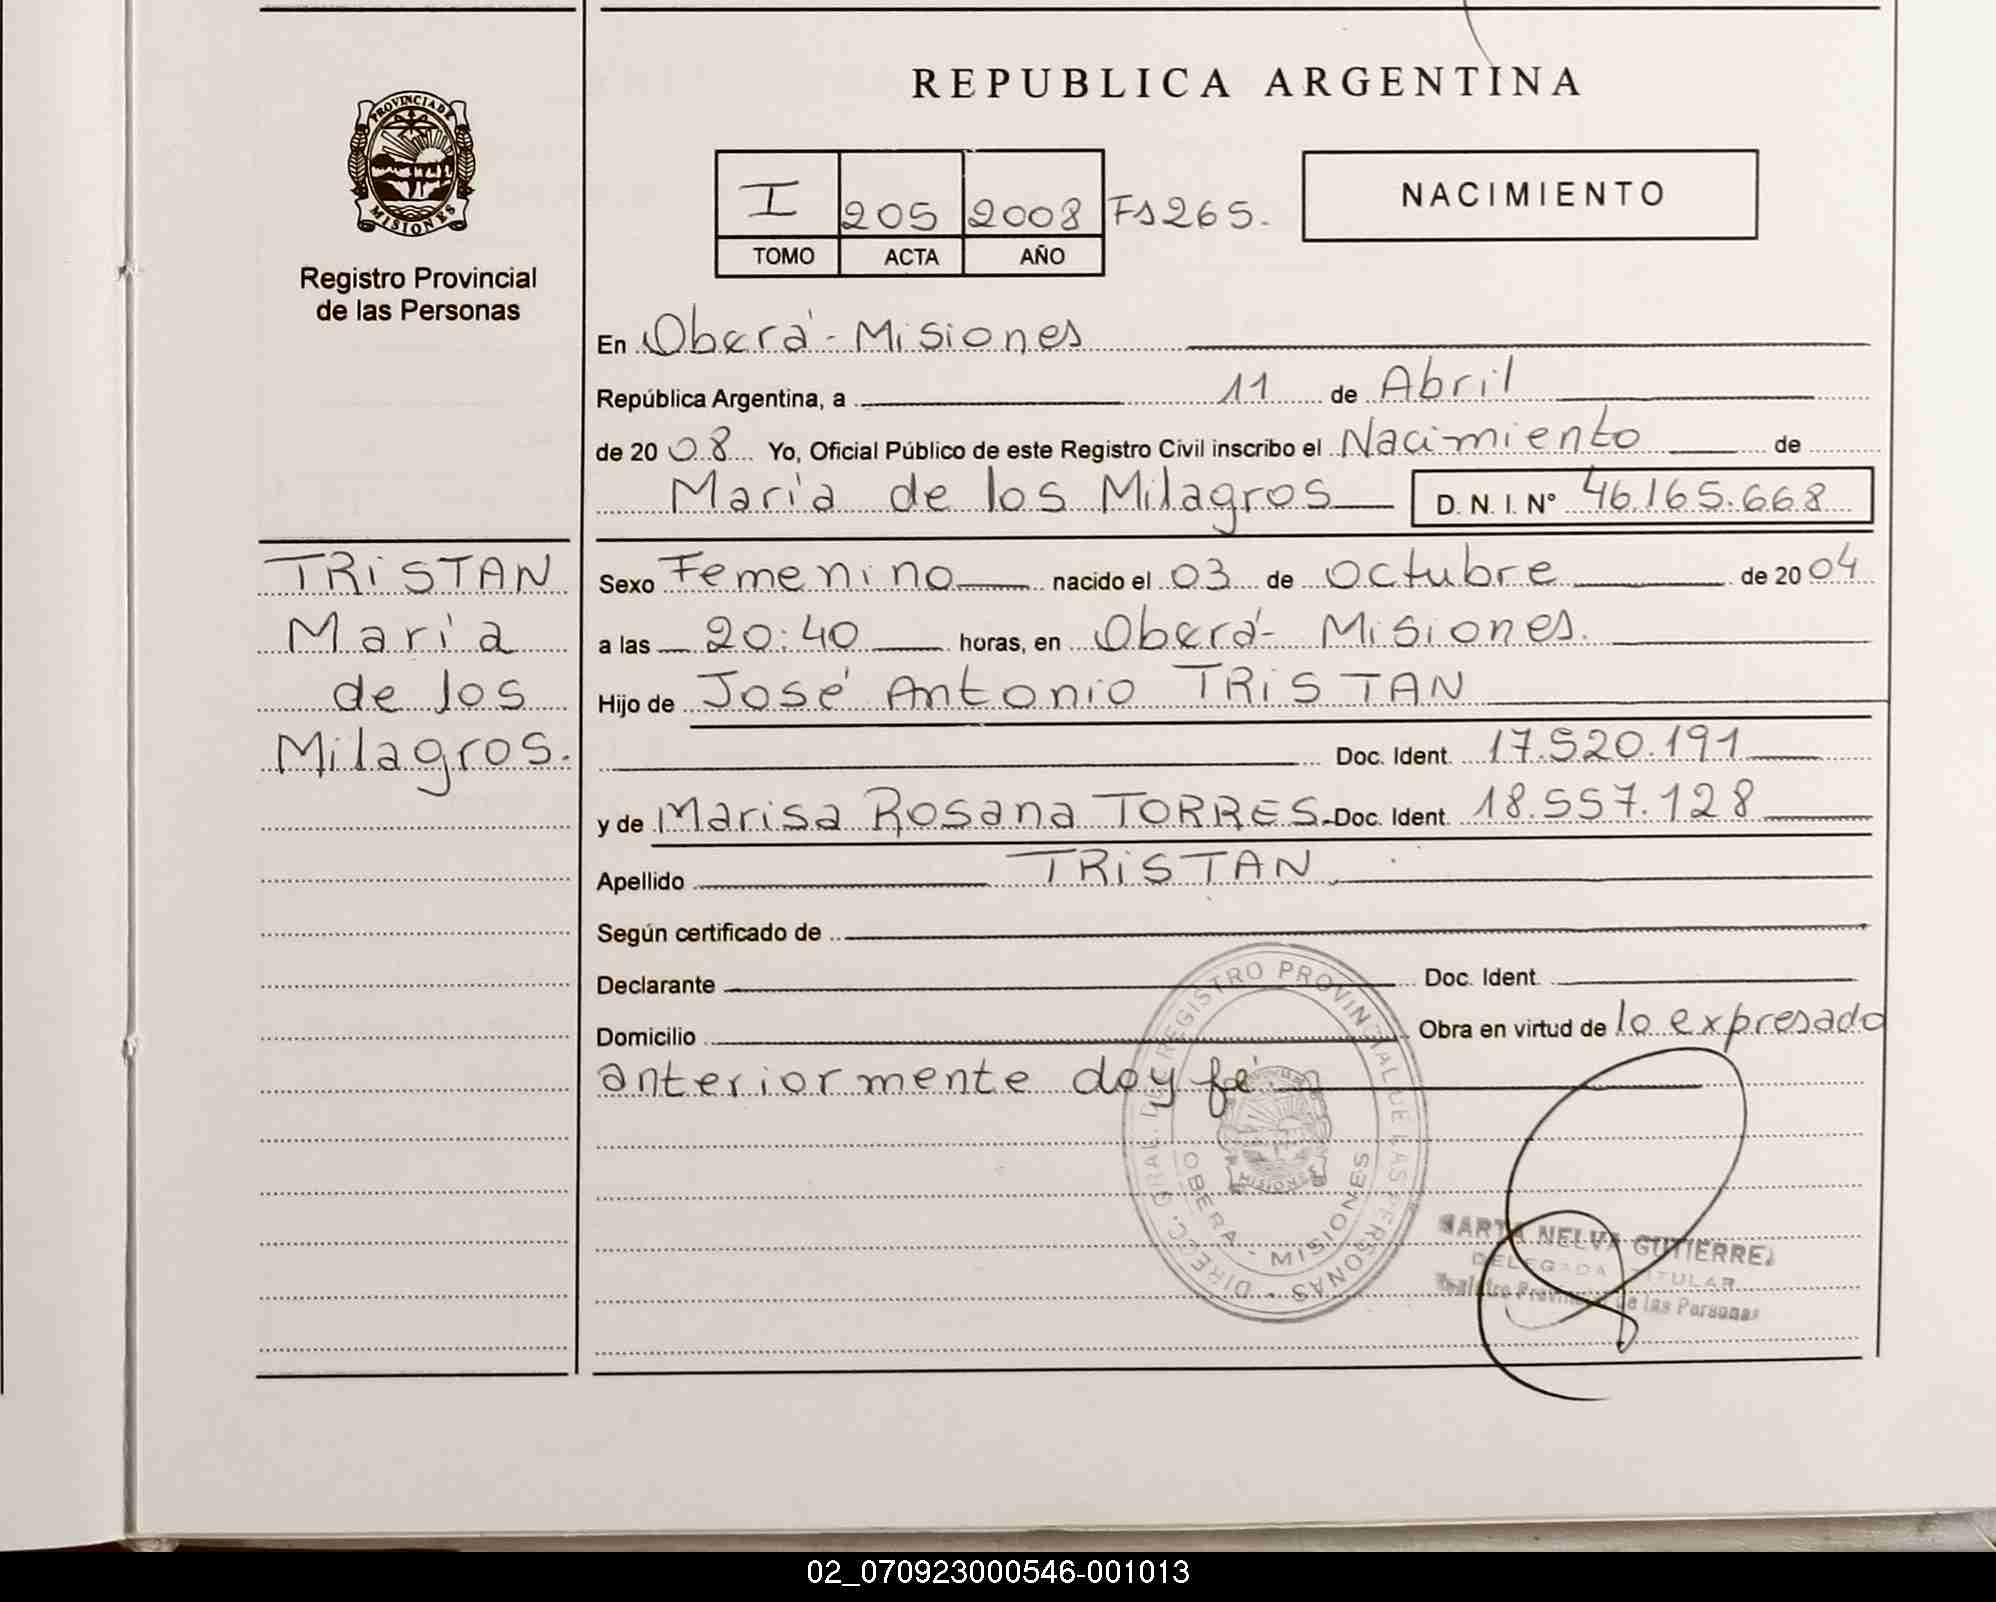 REPUBLICA ARGENTINA
PROVINCIA DE
MISIONES
Registro Provincial
de las Personas
I 205 2008 Fs 265.
TOMO ACTA AÑO
NACIMIENTO
En Oberá - Misiones
República Argentina, a 11 de Abril
de 20 08 Yo, Oficial Público de este Registro Civil inscribo el Nacimiento de
María de los Milagros D. N. I. N° 46.165.668
TRISTAN
María
de los
Milagros.
Sexo Femenino nacido el 03 de Octubre de 20 04
a las 20:40 horas, en Oberá - Misiones.
Hijo de José Antonio TRISTAN
Doc. Ident. 17.520.191
y de Marisa Rosana TORRES.- Doc. Ident. 18.557.128
Apellido TRISTAN
Según certificado de
Declarante Doc. Ident.
Domicilio Obra en virtud de lo expresado
anteriormente doy fé.
DIRECC. GRAL. DEL REGISTRO PROVINCIAL DE LAS PERSONAS
OBERA - MISIONES
MISIONES
MARTA NELVA GUTIERREZ
DELEGADA TITULAR
Registro Provincial de las Personas
02_070923000546-001013